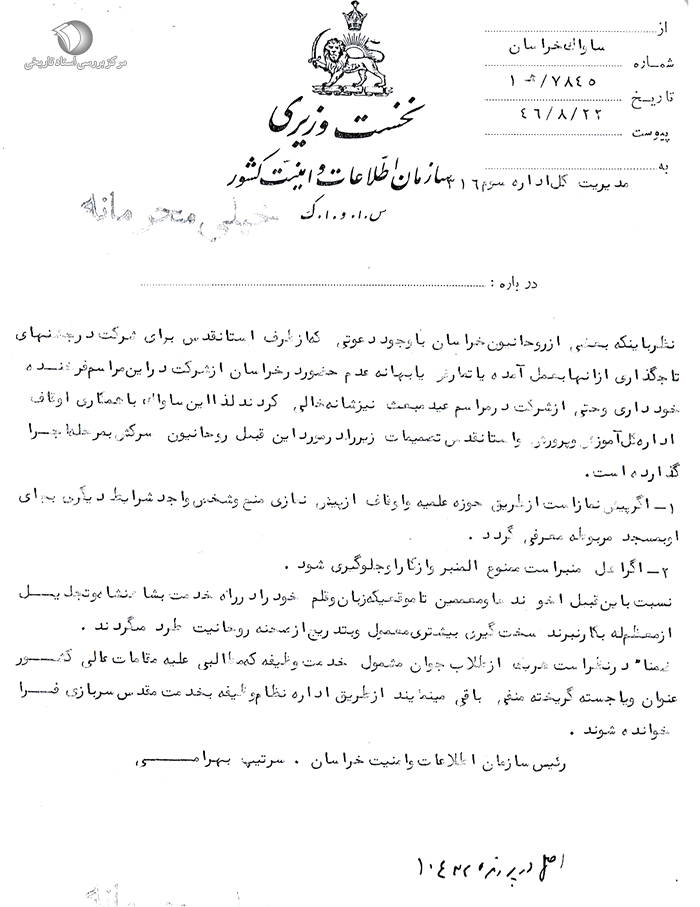 مرکز بررسی اسناد تاریخی
از
ساواک خراسان
شماره
۷۸٤٥/
تاریخ
٤٦/۸/۲۲
پیوست
به
مدیریت کل اداره سوم ۳۱٦
نخست وزیری
سازمان اطلاعات و امنیت کشور
س.ا.و.ا.ک
خیلی محرمانه
در باره :
نظر باینکه بعضی از روحانیون خراسان با وجود دعوتی که از طرف استانقدس برای شرکت در جشنهای
تاجگذاری از آنها بعمل آمده با تمارض یا بهانه عدم حضور در خراسان از شرکت در این مراسم فرخنده
خود داری و حتی از شرکت در مراسم عید مبعث نیز شانه خالی کردند لذا این ساواک با همکاری اوقاف
اداره کل آموزش و پرورش و استانقدس تصمیمات زیر را در مورد این قبیل روحانیون سرکش بمرحله اجرا
گذارده است.
۱- اگر پیش نماز است از طریق حوزه علمیه و اوقاف از پیش نمازی منع و شخص واجد شرایط دیگری بجای
او بمسجد مربوطه معرفی گردد .
۲- اگر اهل منبر است ممنوع المنبر و از کار او جلوگیری شود .
نسبت باین قبیل آخوندها و معممین تا موقعیکه زبان و قلم خود را در راه خدمت بشاهنشاه و تجلیل
از معظم‌له بکار نبرند سخت گیری بیشتری معمول و بتدریج از صحنه روحانیت طرد میگردند .
ضمناً در نظر است هر یک از طلاب جوان مشمول خدمت وظیفه که مطالبی علیه مقامات عالی کشور
عنوان ویا جسته گریخته منفی بافی مینمایند از طریق اداره نظام وظیفه بخدمت مقدس سربازی فرا
خوانده شوند .
رئیس سازمان اطلاعات و امنیت خراسان . سرتیپ بهرامی
اصل در پرونده ۱۰٤۳۲